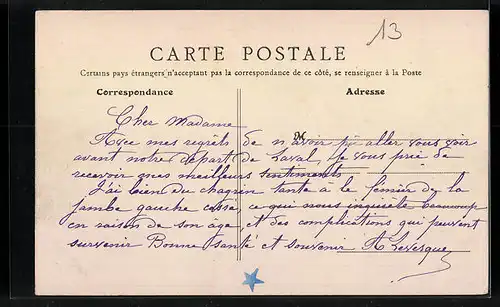 13
CARTE POSTALE
Certains pays étrangers n'acceptant pas la correspondance de ce côté, se renseigner à la Poste
Correspondance
Adresse
Cher Madame
Avec mes regrets de n avoir pu aller vous voir
avant notre départ de Laval, Je vous prie de
recevoir mes meilleurs sentiments
J'ai bien du chagrin tante a le fémur de la
jambe gauche cassé ce qui nous inquiète beaucoup
en raison de son âge et des complications qui peuvent
survenir Bonne santé et souvenir A Levesque